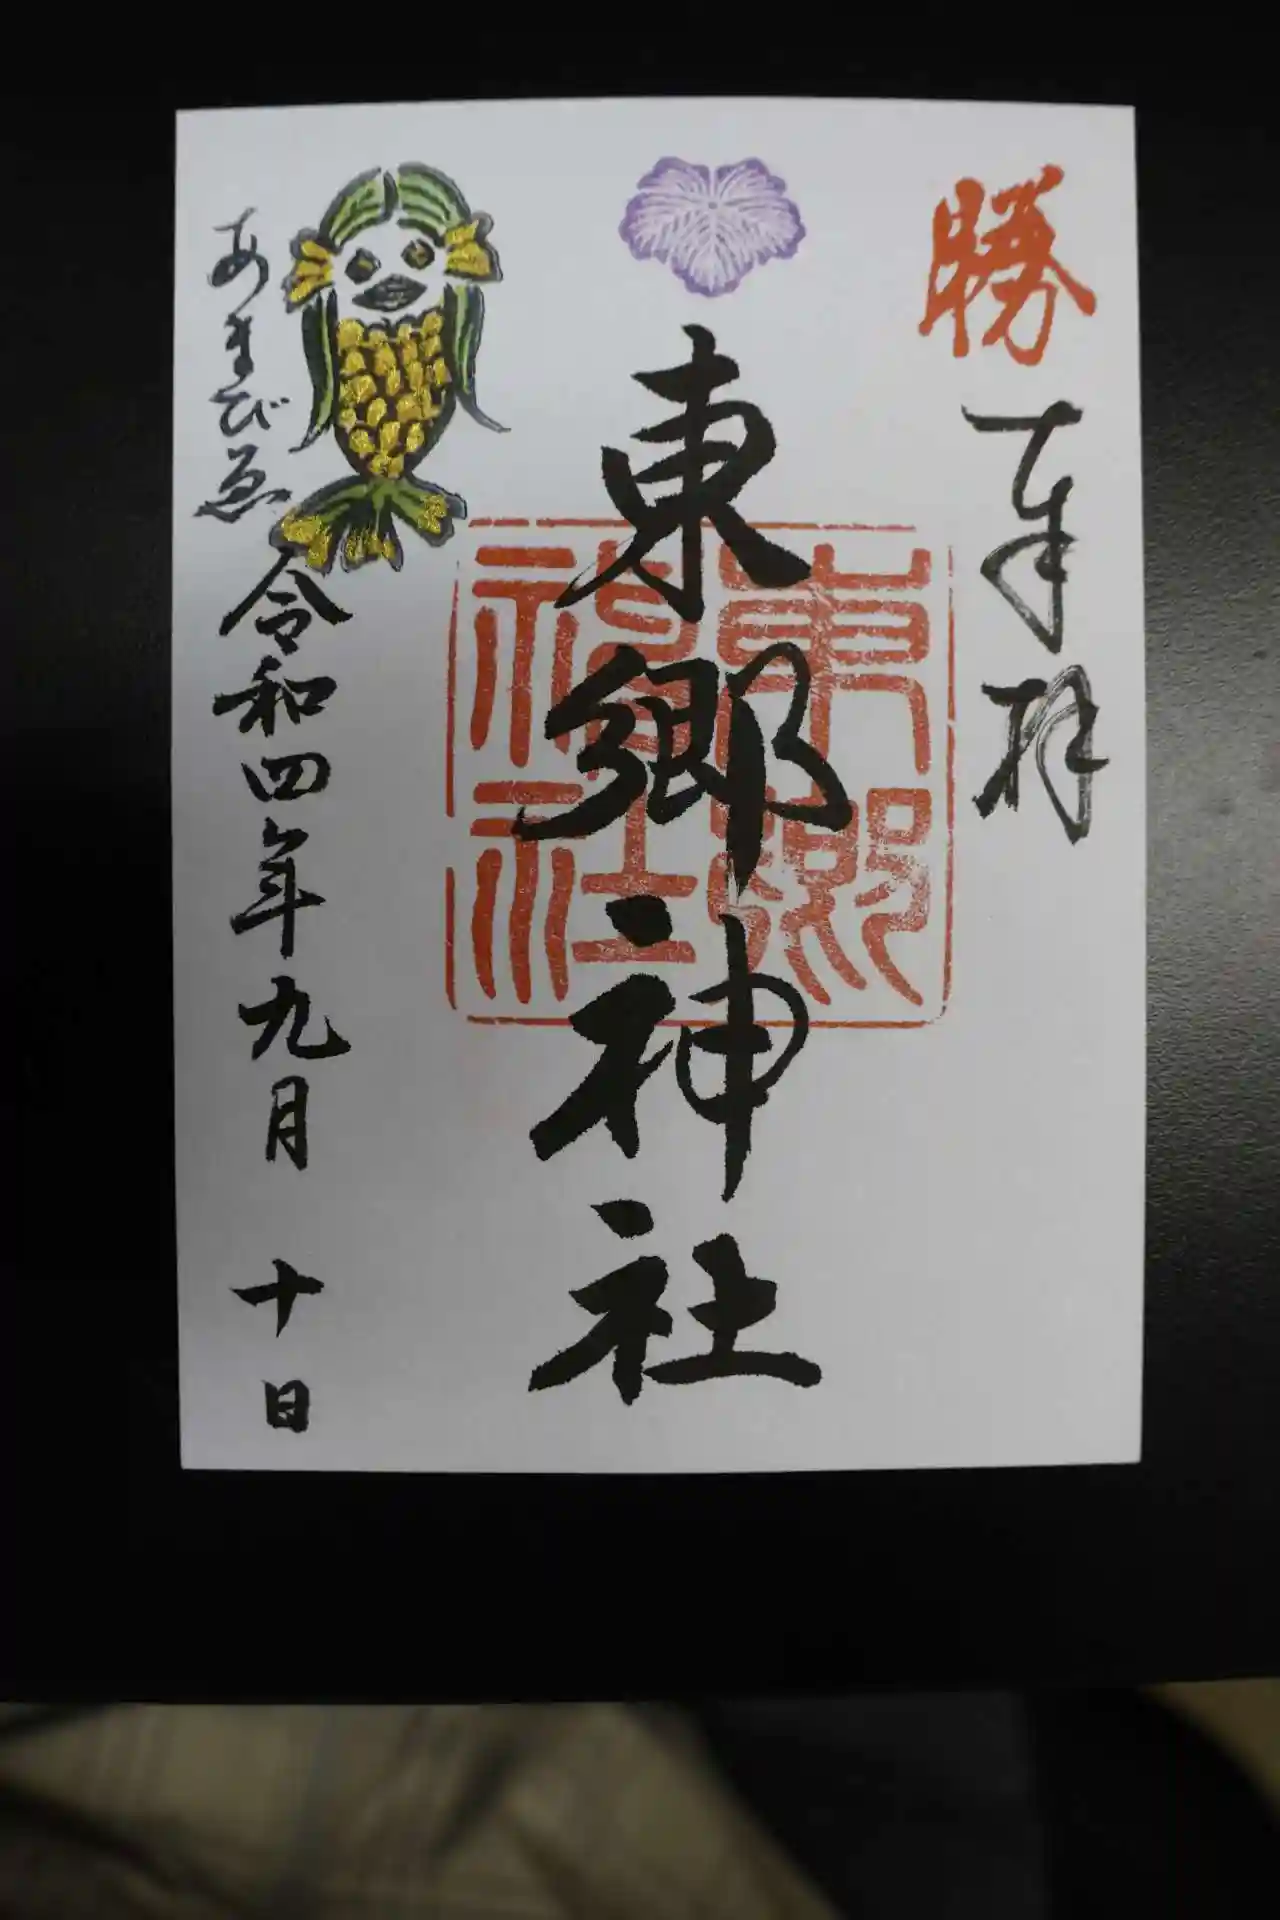 勝
奉拝
東郷神社
東郷神社
令和四年九月十日
あまびゑ